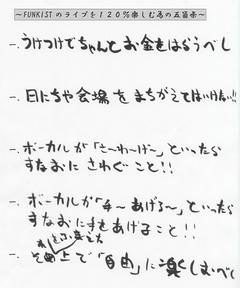 ～FUNKISTのライブを120%楽しむ為の五箇条～
一. うけつけでちゃんとお金をはらうべし
一. 日にちや会場をまちがえてはいけない!!
一. ボーカルが「さ〜わ〜げ〜」といったら
すなおにさわぐこと!!
一. ボーカルが「手〜あげろ〜」といったら
すなおに手をあげること!!
一. その上で「自由」に楽しむべし